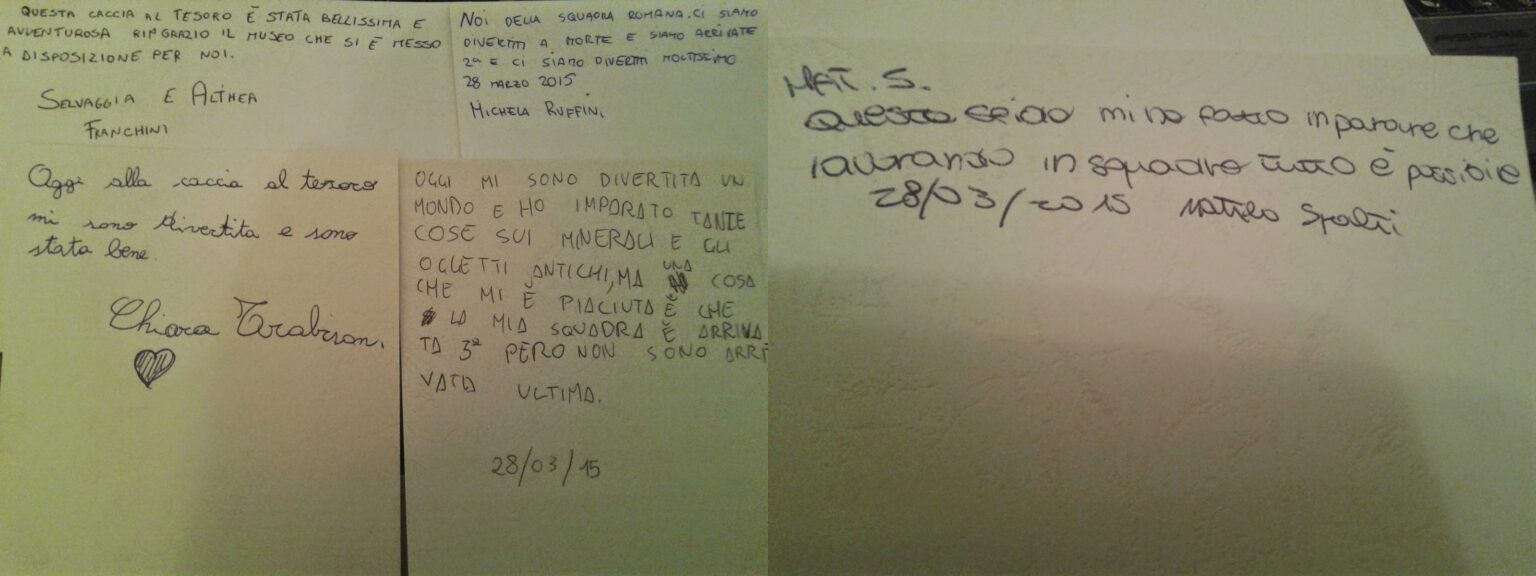 QUESTA CACCIA AL TESORO È STATA BELLISSIMA E
AVVENTUROSA RINGRAZIO IL MUSEO CHE SI È MESSO
A DISPOSIZIONE PER NOI.
SELVAGGIA E ALTHEA
FRANCHINI
NOI DELLA SQUADRA ROMANA, CI SIAMO
DIVERTITI A MORTE E SIAMO ARRIVATE
2ª E CI SIAMO DIVERTITI MOLTISSIMO
28 MARZO 2015
MICHELA RUFFINI
Oggi alla caccia al tesoro
mi sono divertita e sono
stata bene.
Chiara Tarabison.
OGGI MI SONO DIVERTITA UN
MONDO E HO IMPARATO TANTE
COSE SUI MINERALI E GLI
OGGETTI ANTICHI, MA UNA COSA
CHE MI È PIACIUTA È CHE
LA MIA SQUADRA È ARRIVA
TA 3ª PERO NON SONO ARRI
VATA ULTIMA.
28/03/15
MAT. S.
Questo mi ha fatto imparare che
lavorando in squadra tutto è possibile
28/03/2015